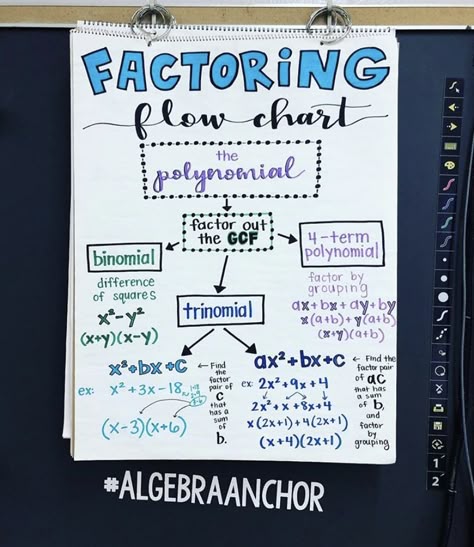 FACTORING
flow chart
the
polynomial
factor out
the GCF
binomial
difference
of squares
x²-y²
(x+y)(x-y)
4-term
polynomial
factor by
grouping
ax+bx+ay+by
x(a+b)+y(a+b)
(x+y)(a+b)
trinomial
x²+bx+c
← Find
the
factor
pair of
c
that
has a
sum
of
b.
ex: x²+3x-18
(x-3)(x+6)
ax²+bx+c
← Find the
factor pair
of ac
that has
a sum
of b,
and
factor
by
grouping
ex: 2x²+9x+4
2x²+x+8x+4
x(2x+1)+4(2x+1)
(x+4)(2x+1)
1
2
#ALGEBRAANCHOR